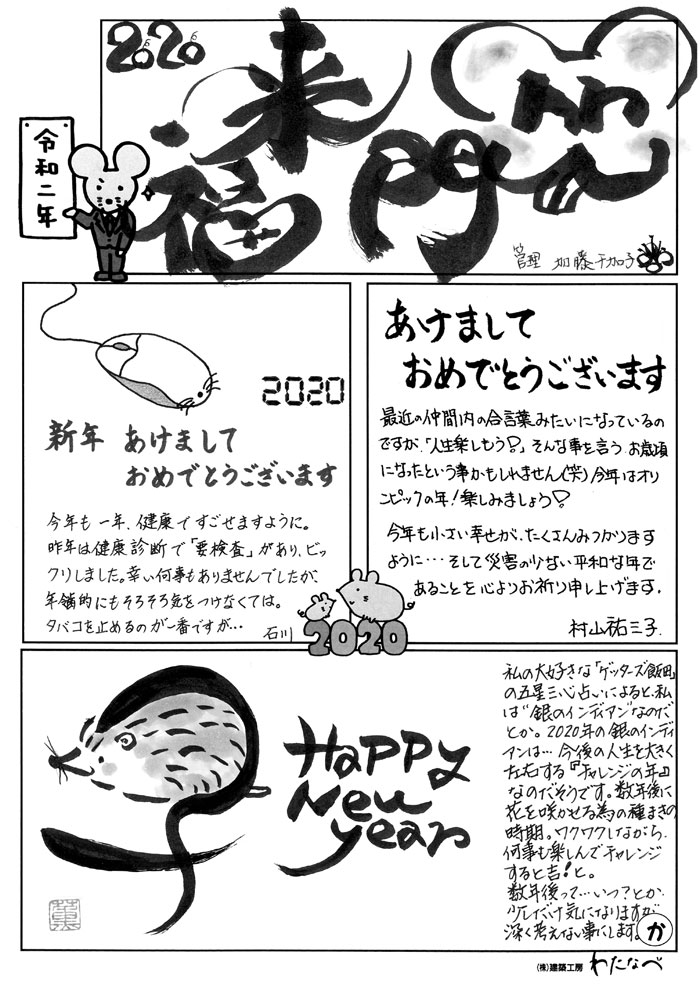 2020
来
福
門
令和二年
管理 加藤千加子
2020
新年 あけまして
おめでとうございます
今年も一年、健康ですごせますように。
昨年は健康診断で「要検査」があり、ビッ
クリしました。幸い何事もありませんでしたが、
年齢的にもそろそろ気をつけなくては。
タバコを止めるのが一番ですが…
石川
あけまして
おめでとうございます
最近の仲間内の合言葉みたいになっているの
ですが、「人生楽しもう♡」そんな事を言うお歳頃
になったという事かもしれません(笑)今年はオリ
ンピックの年!楽しみましょう♡
今年も小さい幸せが、たくさんみつかります
ように…そして災害の少ない平和な年で
あることを心よりお祈り申し上げます。
村山祐三子
2020
Happy
New
year
私の大好きな「ゲッターズ飯田」
の五星三心占いによると、私
は"銀のインディアン"なのだ
とか。2020年の銀のインディ
アンは…今後の人生を大きく
左右する『チャレンジの年』
なのだそうです。数年後に
花を咲かせる為の種まきの
時期。ワクワクしながら、
何事も楽しんでチャレンジ
すると吉!と。
数年後って…いつ?とか、
少しだけ気になりますが
深く考えない事にします。
か
(株)建築工房 わたなべ